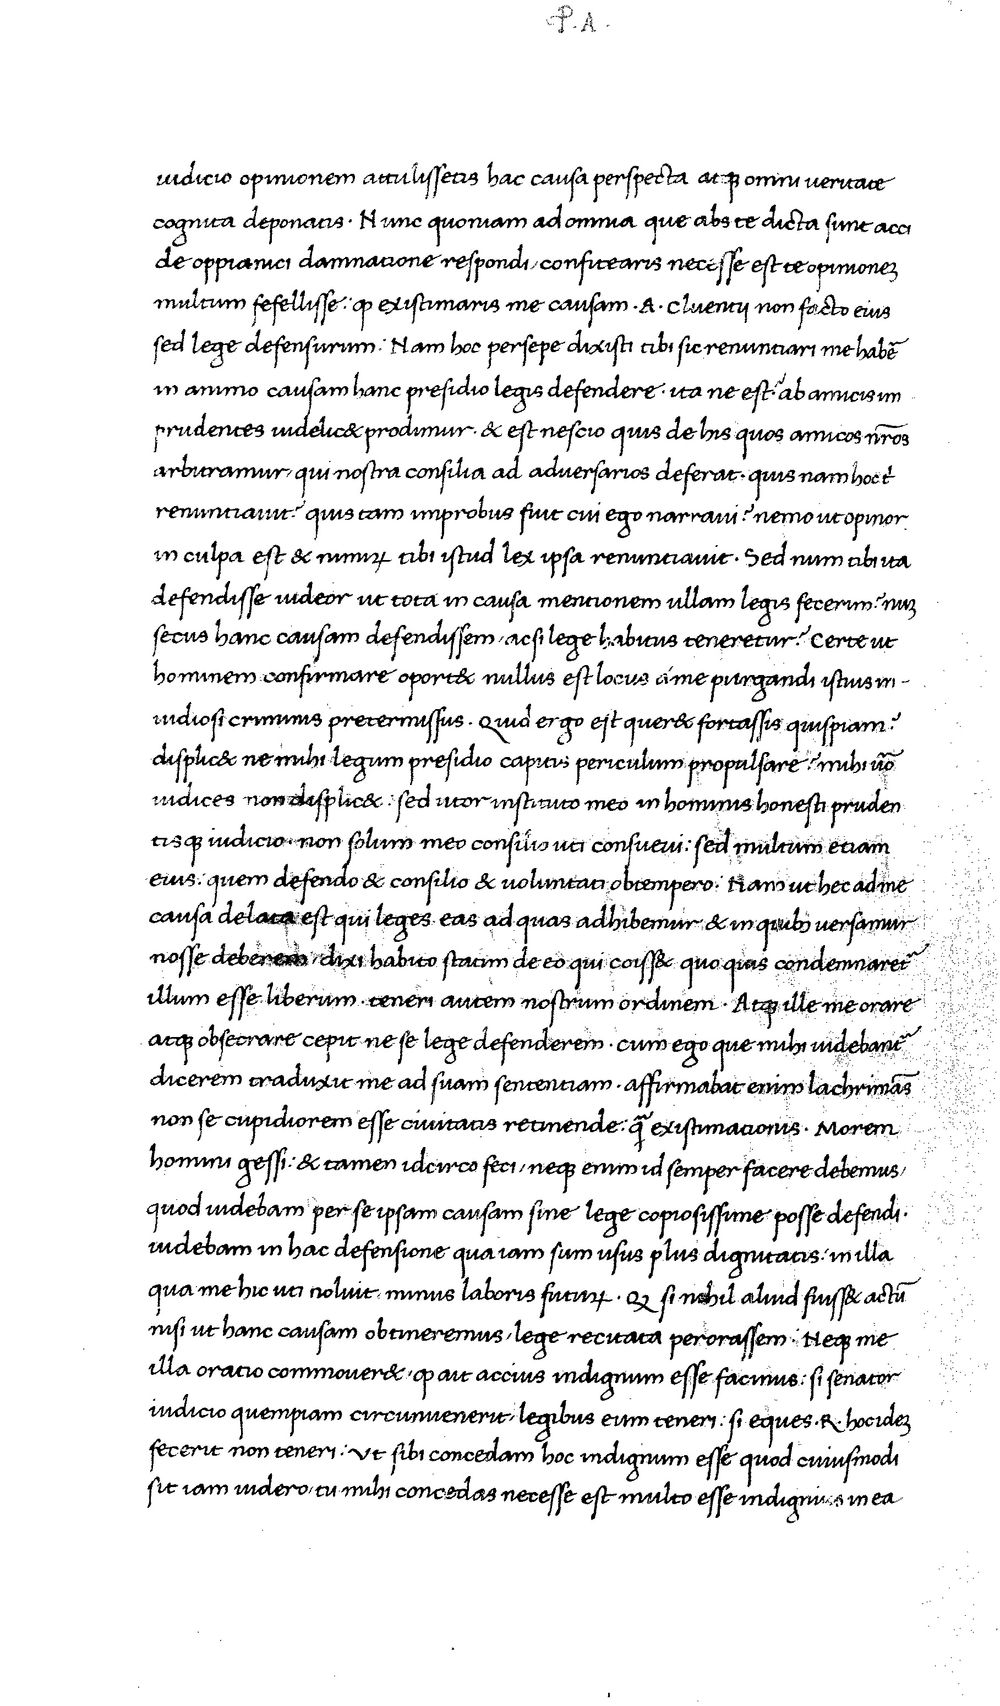 P. A.
iudicio opinionem attulissetis hac causa perspecta atqꝫ omni ueritate
cognita deponatis. Nunc quoniam ad omnia que abs te dicta sunt acci
de oppianici damnatione respondi, confitearis necesse est te opinioneꝫ
multum fefellisse: ꝙ existimaris me causam .A. Cluentij non facto eius
sed lege defensurum: Nam hoc persepe dixisti tibi sic renuntiari me habē
in animo causam hanc presidio legis defendere. ita ne est? ab amicis im
prudentes uidelic& prodimur. & est nescio quis de his quos amicos nr̄os
arbitramur, qui nostra consilia ad aduersarios deferat. quis nam hoc t̓
renuntiauit? quis tam improbus fuit cui ego narraui? nemo ut opinor
in culpa est & nimiꝝ tibi istud lex ipsa renuntiauit. Sed num tibi ita
defendisse uideor ut tota in causa mentionem ullam legis fecerim? nuꝫ
secus hanc causam defendissem, ac si lege habitus teneretur? Certe ut
hominem confirmare oport& nullus est locus á me purgandi istius in-
uidiosi criminis pretermissus. Quid ergo est quer& fortassis quispiam?
displic& ne mihi legum presidio capitis periculum propulsare? mihi ūo
iudices non displic&: sed utor instituto meo in hominis honesti pruden
tisqꝫ iudicio. non solum meo consilio uti consueui: sed multum etiam
eius: quem defendo & consilio & uoluntati obtempero: Nam ut hec ad me
causa delata est qui leges eas ad quas adhibemur & in quibꝫ uersamur
nosse deberem, dixi habito statim de eo qui coiss& quo quis condemnaret᷑
illum esse liberum. teneri autem nostrum ordinem. Atqꝫ ille me orare
atqꝫ obsecrare cepit ne se lege defenderem. cum ego que mihi uidebant᷑
dicerem traduxit me ad suam sententiam. affirmabat enim lachrimās
non se cupidiorem esse ciuitatis retinende: q̄ existimationis. Morem
homini gessi: & tamen idcirco feci, neqꝫ enim id semper facere debemus,
quod uidebam per se ipsam causam sine lege copiosissime posse defendi.
uidebam in hac defensione qua iam sum usus plus dignitatis: in illa
qua me hic uti noluit, minus laboris futuꝝ. Qꝫ si nihil aliud fuiss& actū
nisi ut hanc causam obtineremus, lege recitata perorassem. Neqꝫ me
illa oratio commouer&, ꝙ ait accius indignum esse facinus: si senator
iudicio quempiam circunuenerit, legibus eum teneri: si eques .R. hoc ideꝫ
fecerit non teneri: Vt sibi concedam hoc indignum esse quod cuiusmodi
sit iam uidero, tu mihi concedas necesse est multo esse indignius in ea